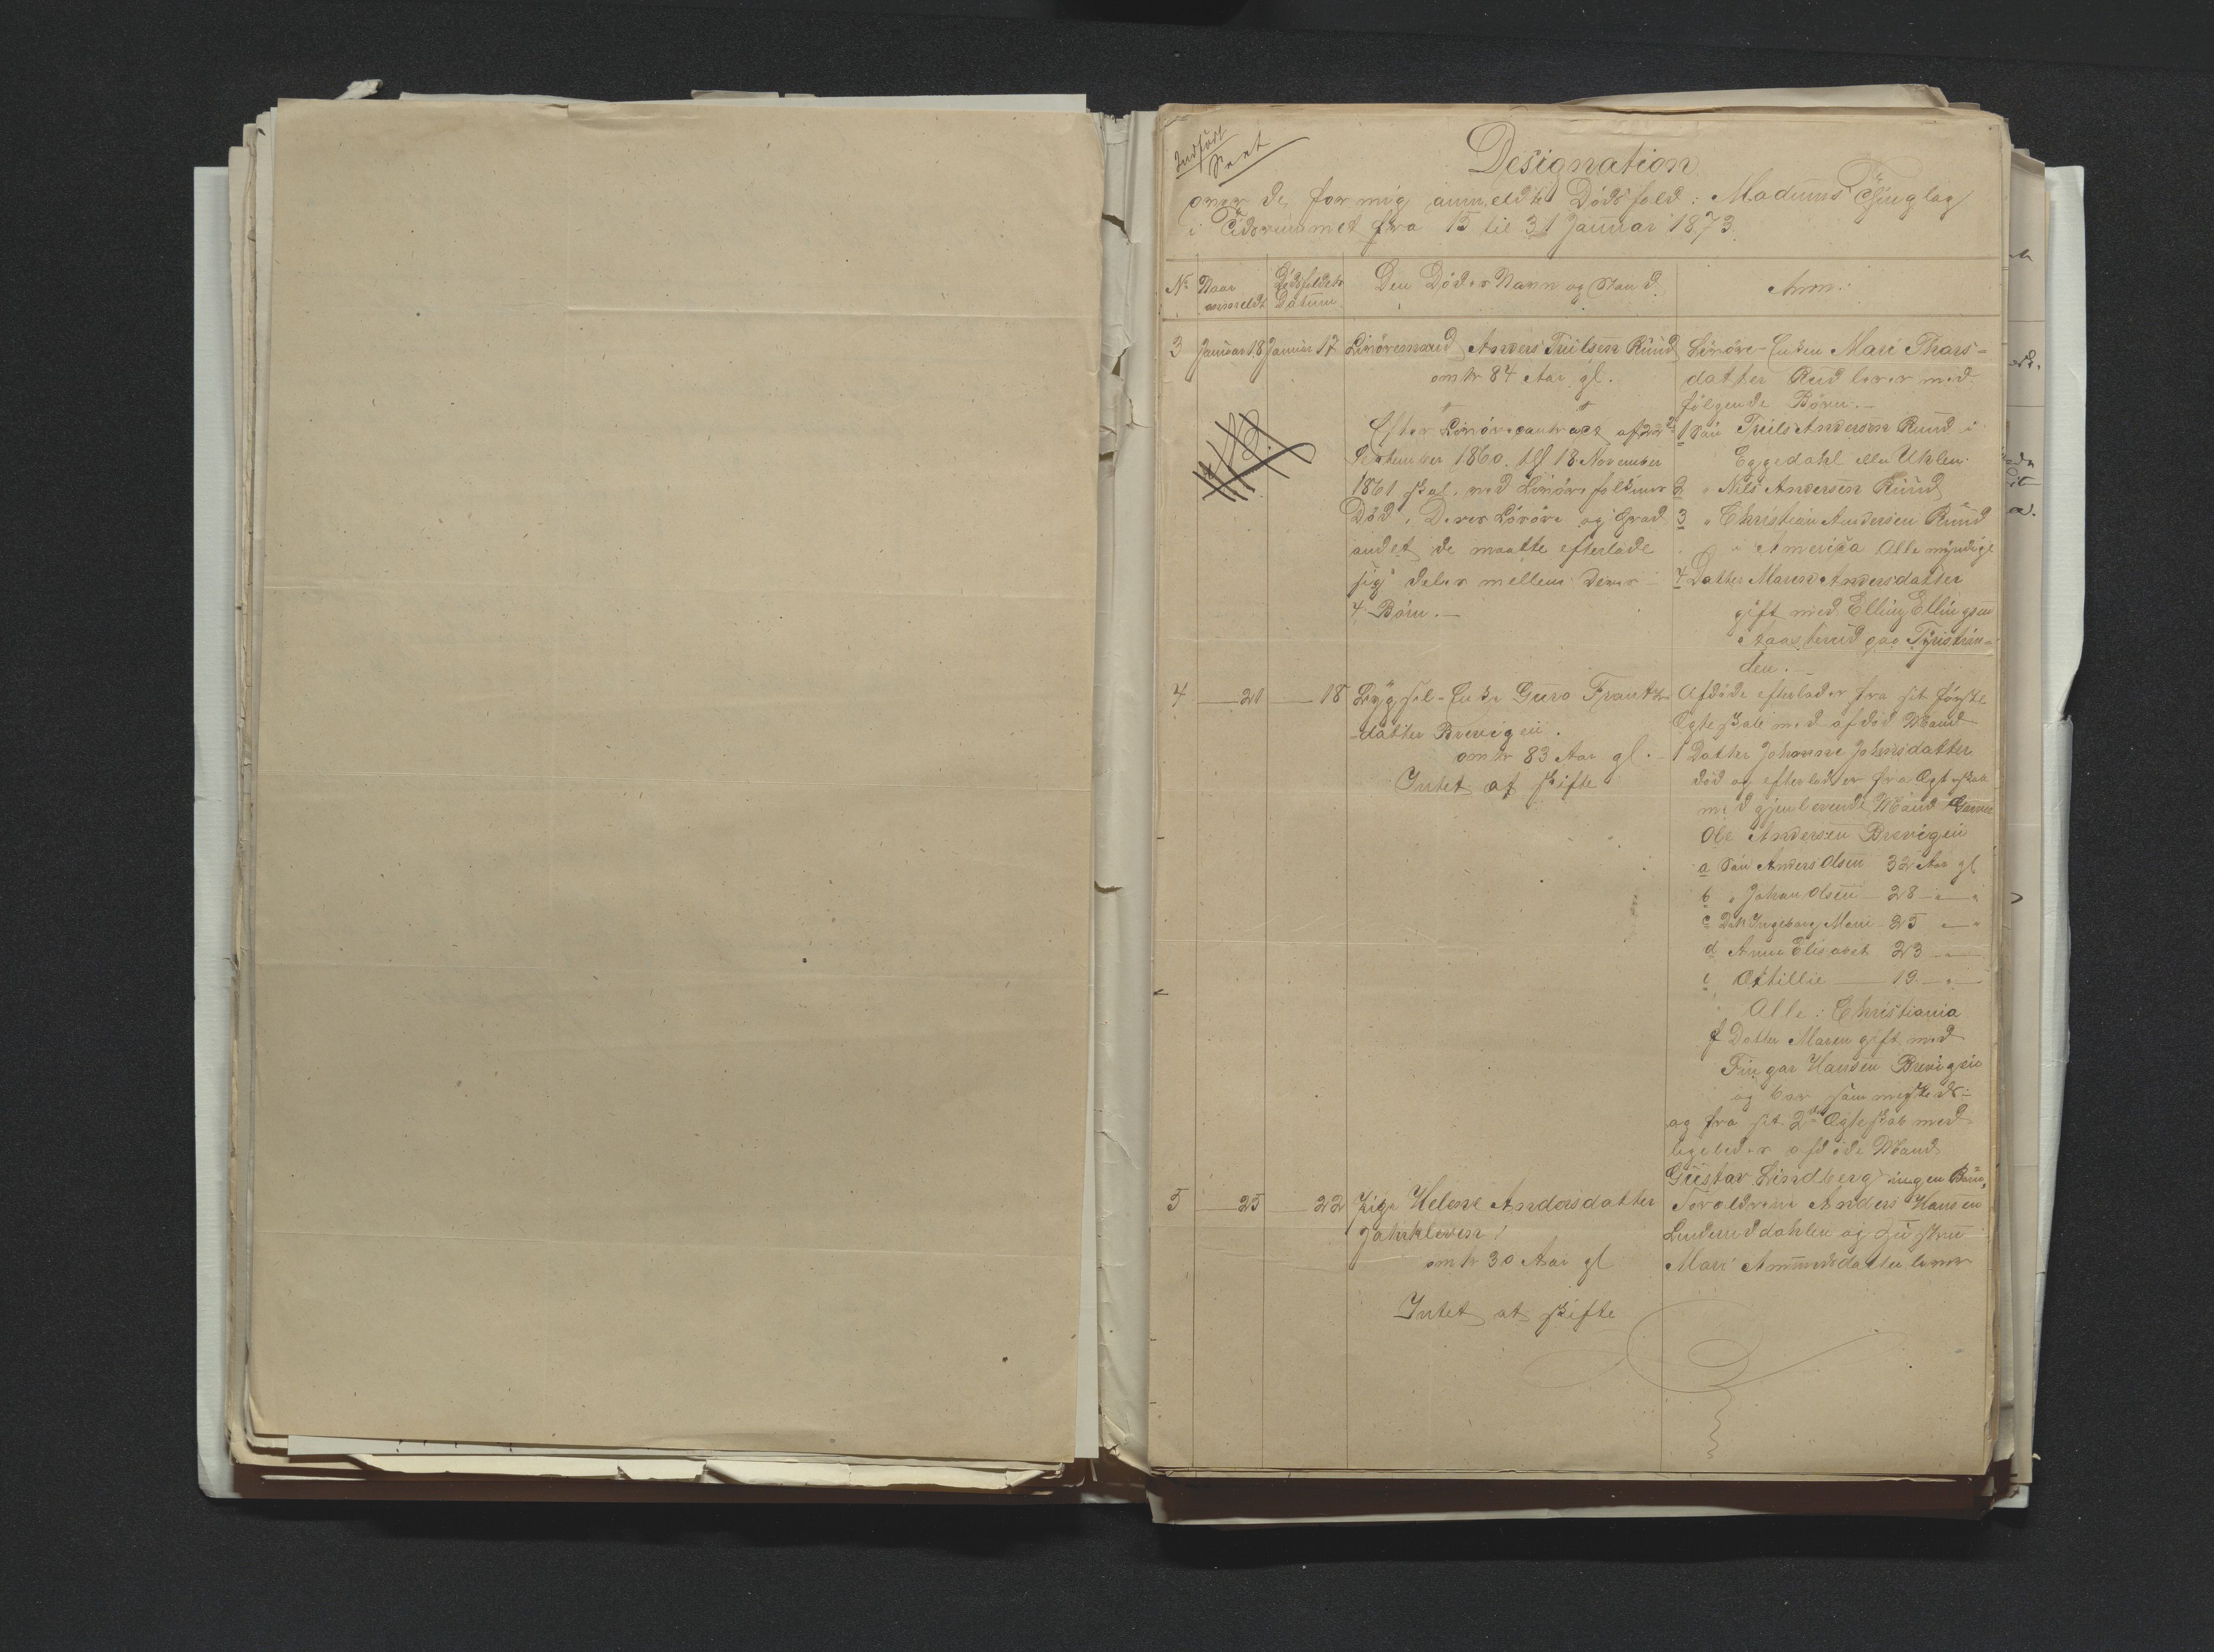 Indført
Designation
over de for mig anmeldte Dödsfald i Modums Thinglag
i Tidsrummet fra 15 til 31 Januar 1873.
No Naar anmeldt Dödsfaldets Datum Den Dödes Navn og Stand Anm:
3 Januar 18 Januar 17 Livöremand Anders Truilsen Ruud
omtr 84 Aar gl.
Efter Livörecontract af 22de
September 1860, tgl 18 November
1861 skal, ved Livörefolkenes
Död, Deres Livöre og hvad
andet de maatte efterlade
sig deles mellem deres
4 Börn.
Livöre-Enken Mari Thors-
datter Ruud lever med
fölgende Börn.
1 Sön Truils Andersen Ruud i
Eggedahl eller Uhlen
2 " Nils Andersen Ruud
3 " Christian Andersen Ruud
i America Alle myndige
4 Datter Maren Andersdatter
gift med Elling Ellingsen
paa Tyristran-
den.
4 — 21 — 18 Bygsel-Enke Guro Frantz-
datter Brevigen.
omtr 83 Aar gl.
Intet at skifte
Afdöde efterlader fra sit förste
Ægteskab med afdöd Mand
1 Datter Johanne Johnsdatter
död og efterlader fra Ægteskab
med gjenlevende Mand
Ole Andersen Brevigen
a Sön Anders Olsen 32 Aar gl
b " Johan Olsen — 28 — " "
c Datt Ingeborg Mari 25 " — "
d Anne Elisabet 23 — " —
e Octillie — 19 — " —
Alle i Christiania
f Datter Maren gift med
Fingar Hansen Brevigen
og bor sammesteds
og fra sit 2det Ægteskab med
ligeledes afdöde Mand
Gustav Lindberg ingen Börn.
5 — 25 — 22 Pige Helene Andersdatter
omtr 30 Aar gl
Intet at skifte
Foreldrene Anders Hansen
Lunderuddahlen og Hustru
Mari Amundsdatter lever